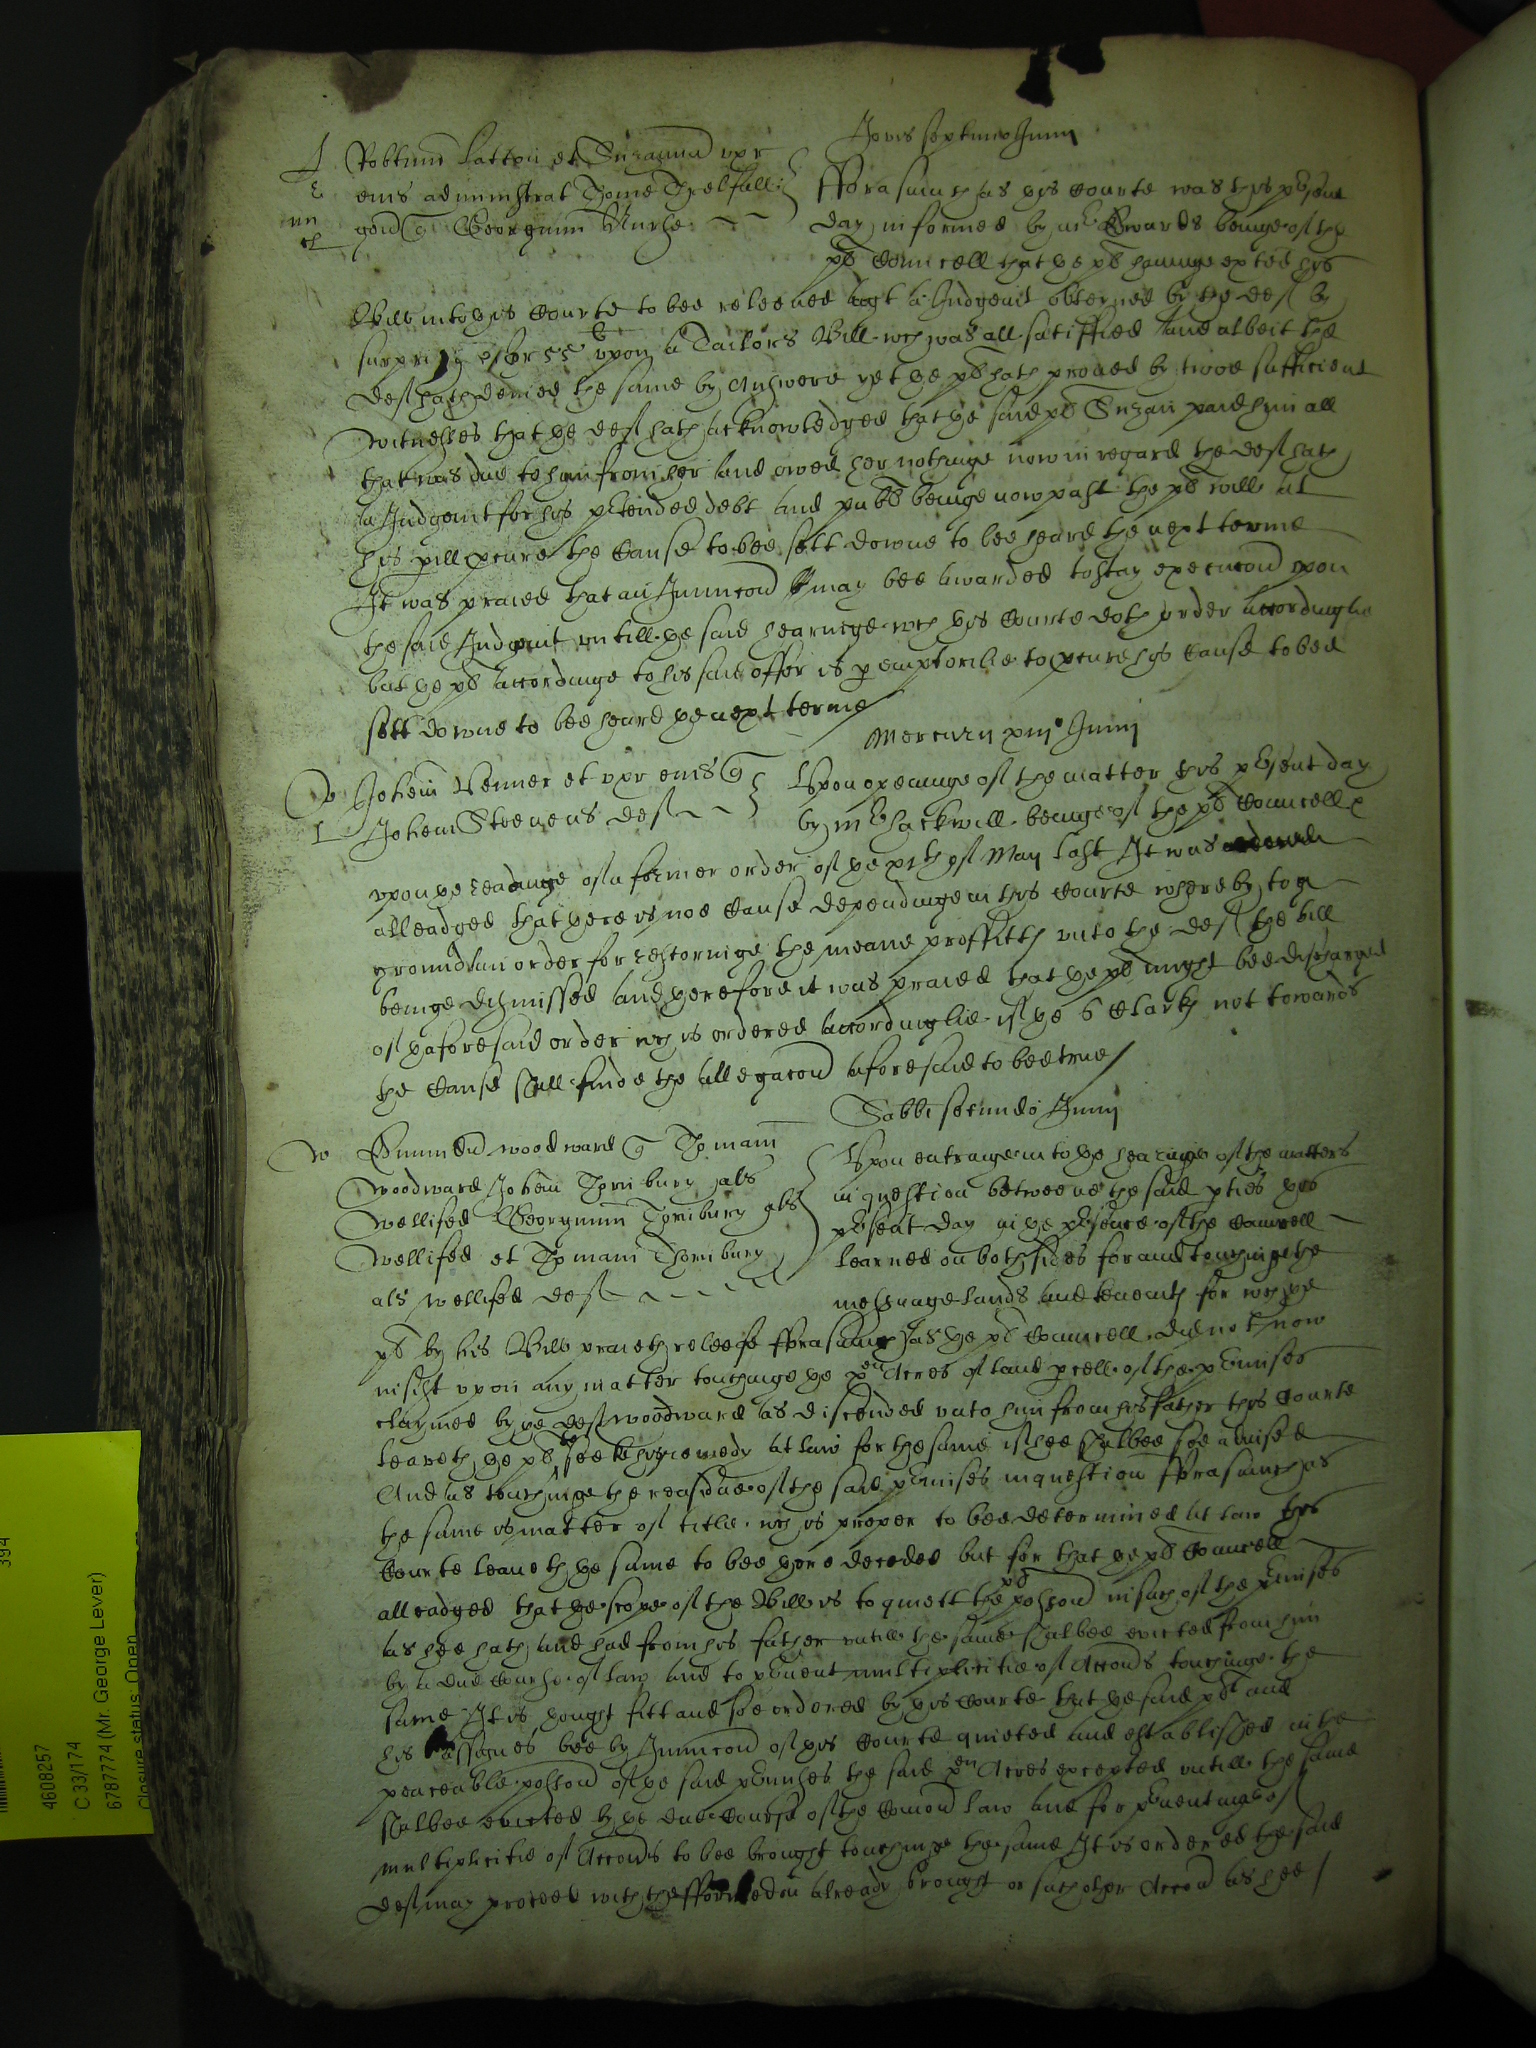 Jovis septimo Junii
Robtum Latton et Suzanna uxr
eius administrat Thome Thelfall
Georgium
fforasmuch as this Courte was this pñte
day informed by mr Edwards beinge of the
plt Councell that the plt havinge exhited his
Bill into this Courte to bee releeved agt a Judgemt obteyned by the deft by
surprize for 55 upon a Tailors Bill wch was all satisffied and albeit the
deft hath denied the same by Answere yet the plt hath proved by twoe sufficient
witnesses that the deft hath acknowledged that the said plt Suzan paid him all
that was due to him from her and owed her nothinge now in regard the deft hath
a Judgemt for his ptended debt and publ beinge now past the plt will at
his perill pcure the Cause to bee sett downe to bee heard the next terme
It was praied that an Junnccon may bee awarded to stay execucon upon
the said Judgmt untill the said hearinge wch this Courte doth order accordinglie
but the plt accordinge to his said offer is peremptorilie to pcure this Cause to bee
sett downe to bee heard the next terme
Mercurii xiii° Junii
Johem Venner et uxr eius
Johem Stevens deft
Upon openinge of the matter this pñte day
by mr Sackvill beinge of the plt Councell
upon the readinge of a former order of the xvith of May last It was
alleadged that there is noe Cause dependinge in this Courte whereby to
ground an order for restoringe the meane proffitts unto the deft the bill
beinge dismissed and therefore it was praied that the plt might bee discharged
of thaforesaid order wch is ordered accordinglie if the 6 Clarke not towards
the Cause shall finde the allegacon aforesaid to bee true
Sabbi secundo Junii
Edmundu woodward Thomam
Woodward Johem Thornbury als
Wellifed Georgium Thornbury als
Wellifed et Thomam Thornbury
als Wellifed deft
Upon entringe into the hearinge of the matters
in question betweene the said pties this
pñte day in the psence of the Councell
learned on both sides for and touchinge the
messuage lands and tenemts for wch the
plt by his Bill praieth releefe fforasmuch as the plt Councell did not now
insist upon any matter touchinge the xen Acres of land pcell of the pmisses
claymed by the deft Woodward as discended unto him from his father this Courte
leaveth the plt to seeke his remedy at law for the same if hee shalbee soe advised
And as touchinge the reasidue of the said pmisses in question fforasmuch as
the same is matter of title wch is proper to bee determined at law this
Courte leaveth the same to bee there decided but for that the plt Councell
alleadged that the scope of the Bill is to quiett the plt possion in such of the pmisses
as hee hath and had from his father untill the same shalbee evicted from him
by a due Course of law and to pvent multiplicitie of Accons touchinge the
same It is thought fitt and soe ordered by this Courte that the said plt and
his assignes bee by Junnccon of this Courte quieted and established in the
peaceable possion of the said pmisses the said xen Acres excepted untill the same
shalbee evicted by the due Course of the Comon law and for pventinge of
multiplicitie of Accons to bee brought touchinge the same It is ordered the said
deft may proceed with the already brought or such other Accon as hee
394
4608257
C 33/174
6787774 (Mr. George Lever)
Closure status: Open